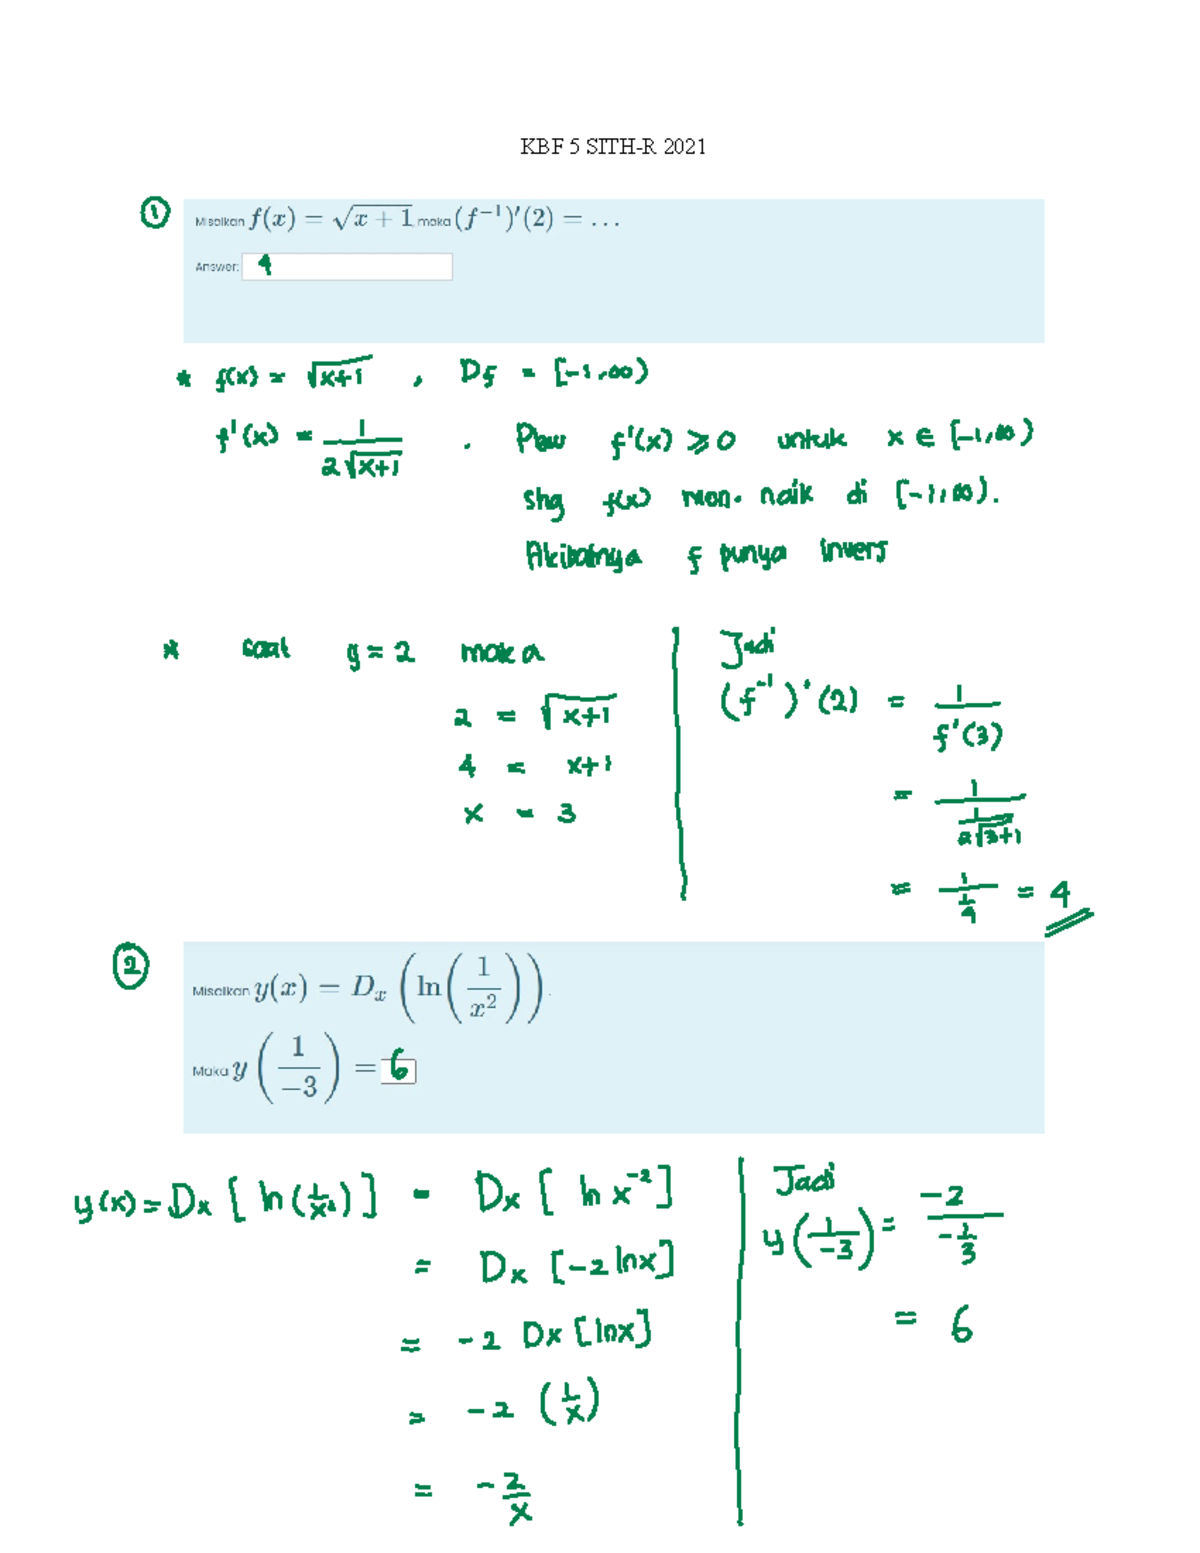 KBF 5 SITH-R 2021
① Misalkan f(x) = √(x + 1), maka (f⁻¹)′(2) = …
Answer: 4
* f(x) = √(x+1) , Df = [-1,∞)
f'(x) = 1/(2√(x+1)) . Plaw f'(x) ≥ 0 untuk x ∈ [-1,∞)
shg f(x) mon. naik di [-1,∞).
Akibatnya f punya invers
* saat y = 2 maka
2 = √(x+1)
4 = x+1
x = 3
Jadi
(f⁻¹)'(2) = 1/f'(3)
= 1/(1/(2√(3+1)))
= 1/(1/4) = 4
② Misalkan y(x) = Dₓ(ln(1/x²)).
Maka y(1/−3) = 6
y(x) = Dx [ln(1/x²)] = Dx [ln x⁻²]
= Dx [-2 lnx]
= -2 Dx [lnx]
= -2 (1/x)
= -2/x
Jadi
y(1/-3) = -2/(-1/3)
= 6